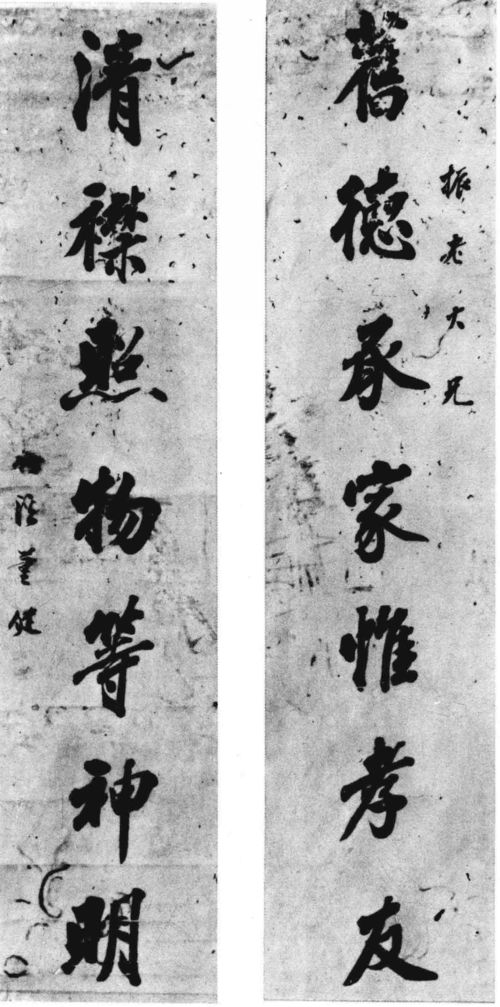 振老大兄
舊德承家惟孝友
清襟照物等神明
董健